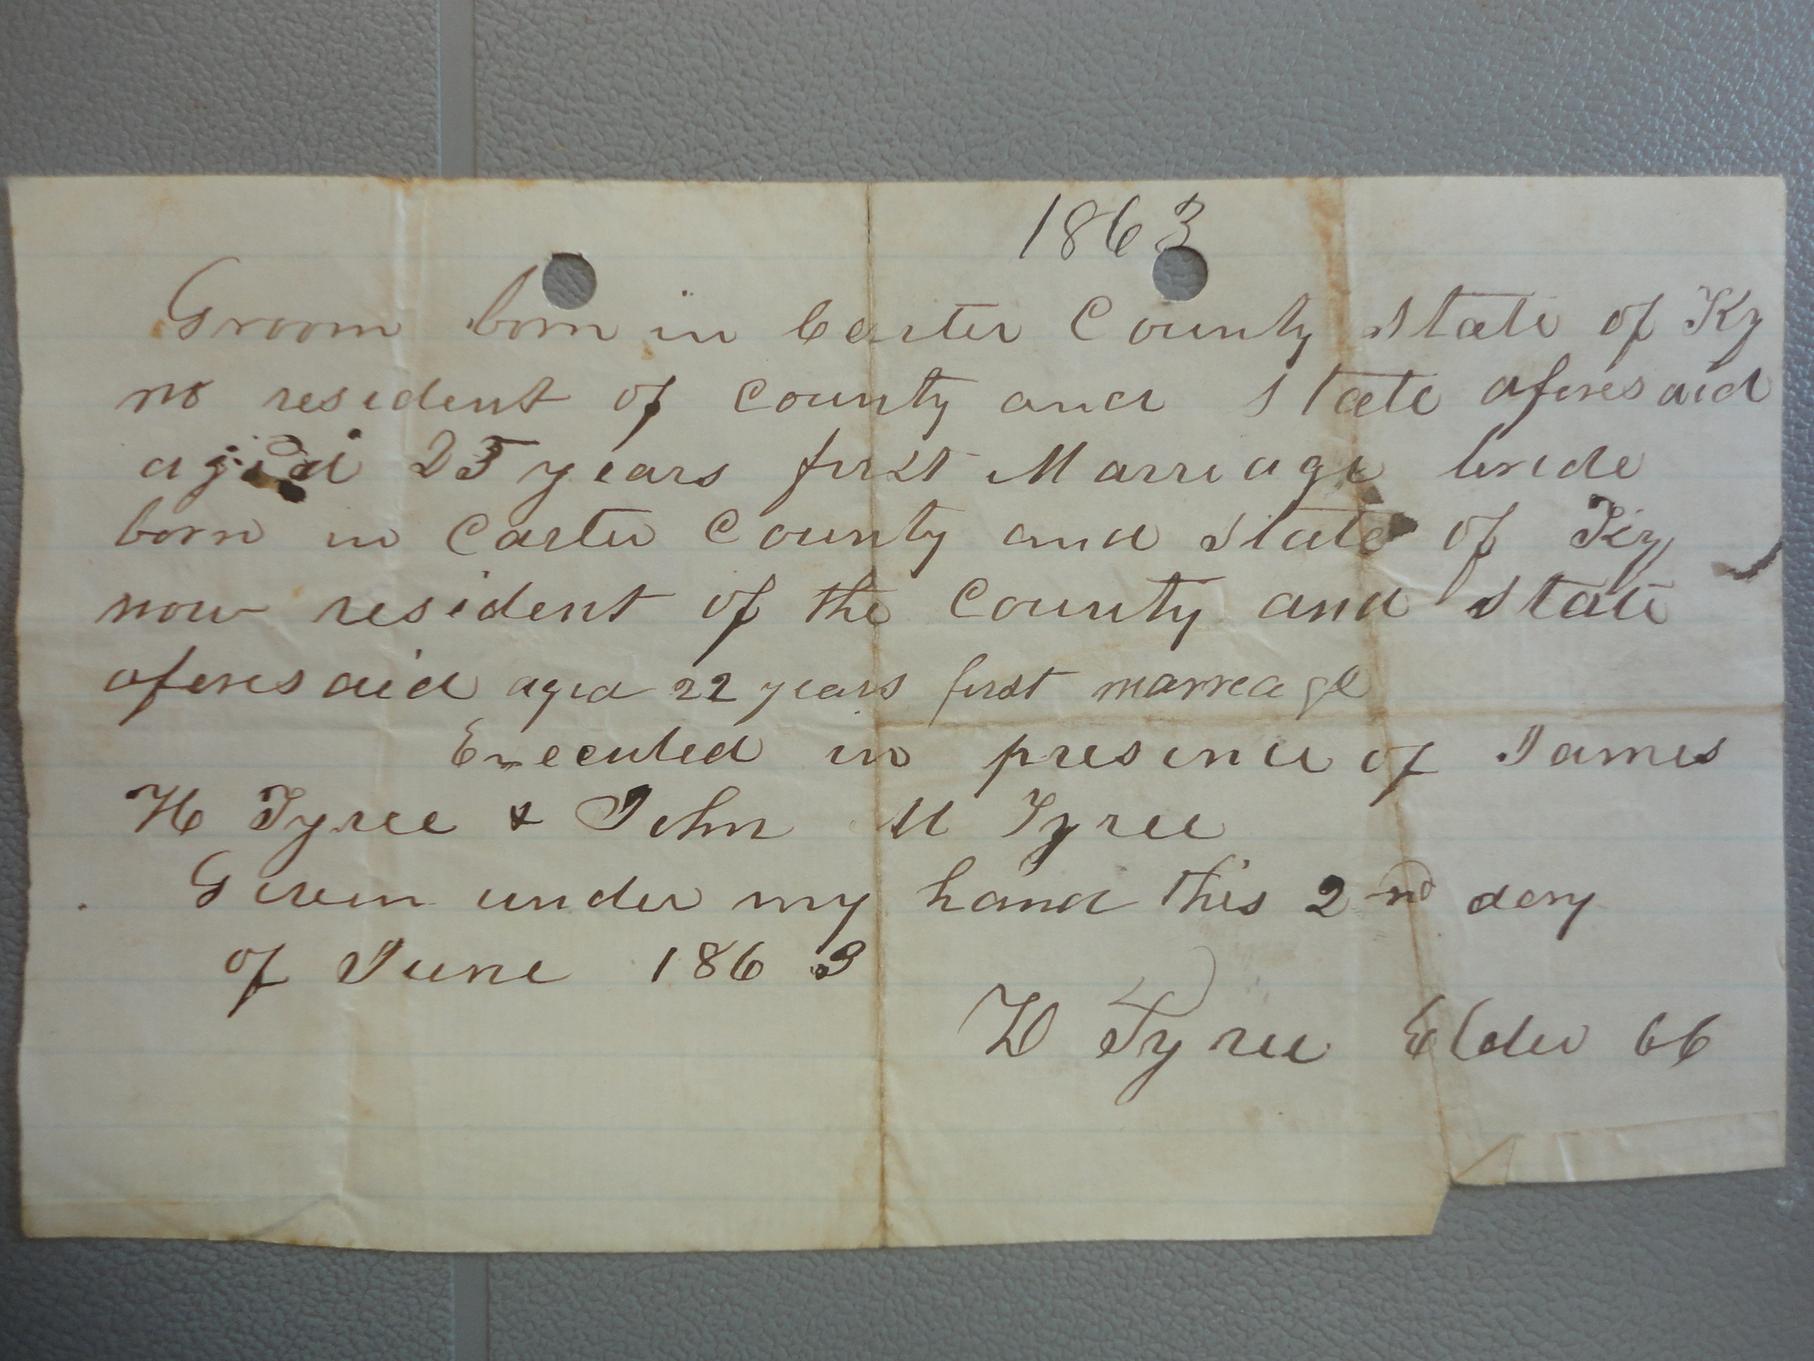 1863
Groom born in Carter County State of Ky
no resident of County and State aforesaid
aged 25 years first Marriage bride
born in Carter County and State of Ky
now resident of the County and State
aforesaid aged 22 years first marreage
Executed in presence of James
H Tyree & John M Tyree
Given under my hand this 2nd day
of June 1863
Tyree Elder